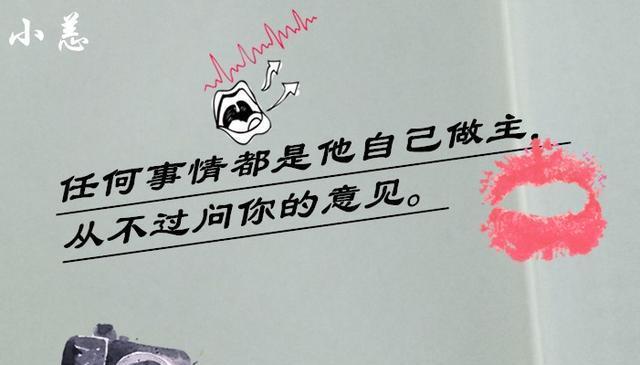 小恙
任何事情都是他自己做主，
从不过问你的意见。